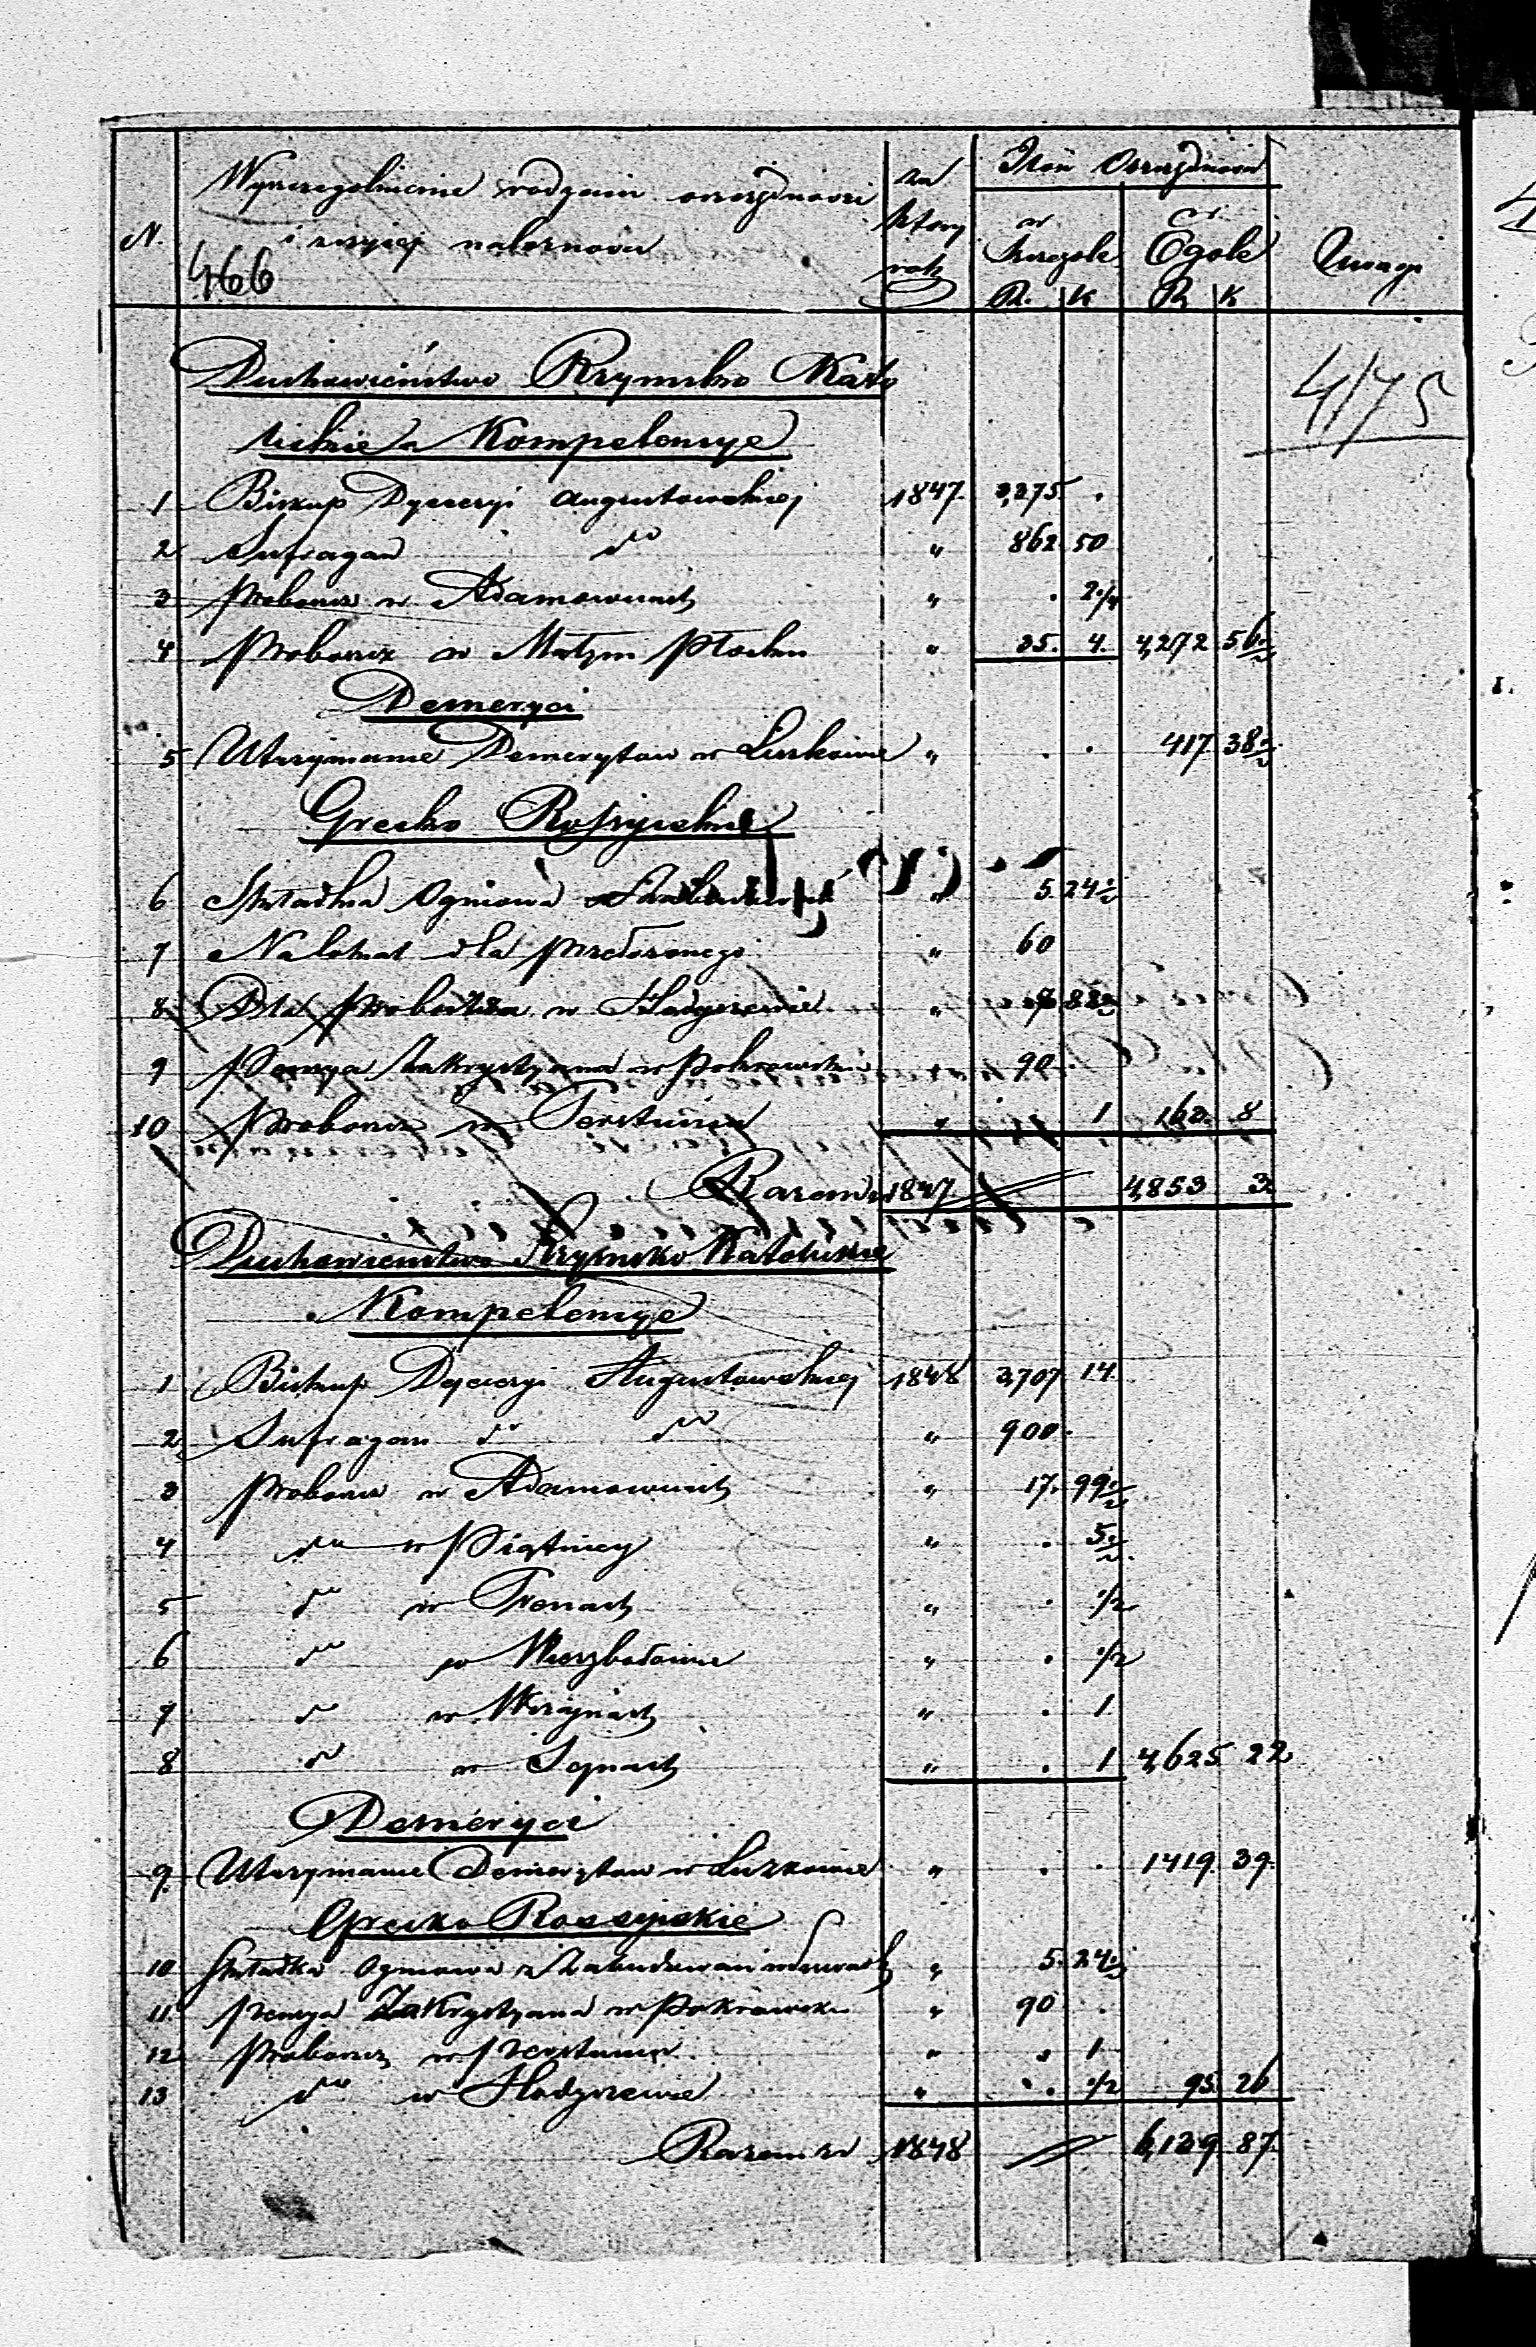 N.
Wyszczególnienie rodzaju oszczędności
i z czyjej należności
466
za
który
rok
Ilość Oszczędności
w
Szczególe
w
Ogóle
R. K
R K
Uwagi
4175
Duchowieństwo Rzymsko Kato
lickie a Kompetencye
1 Biskup Dyecezyi Augustowskiej 1847 3,375 .
2 Sufragan do " 862 50
3 Proboszcz w Adamowiczach " . 2 1/4
4 Proboszcz w Małym Płocku " 35. 4. 4,272 56 1/2
Demeryci
5 Utrzymanie Demerytów w Liszkowie " . . 417 38 1/2
Grecko Rossyiskie
6 Składka Ogniowa " 5 24 1/2
7 Na lokal dla przełożonego " 60
8 Dla Proboszcza w Hodyszewie "
9 Pensya Zakrystyana w Pokrowsku " 90 .
10 Proboszcz w " . 1 163. 8
Razem 1847 4,853 3
Duchowieństwo Rzymsko Katolickie
Kompetencye
1 Biskup Dyecezyi Augustowskiej 1848 3,707 14
2 Sufragan do do " 900 .
3 Proboszcz w Adamowiczach " 17. 99 1/2
4 do w Piątnicy " . 5 1/2
5 do w Trenach " . 1/2
6 do w Wierzbołowie " . 1/2
7 do w " . 1
8 do w Sejnach " . 1 4,625 22
Demeryci
9. Utrzymanie Demerytów w Liszkowie " . . 1419 39
Grecko Rossyiskie
10 Składka Ogniowa z Zabudowań " 5 24 1/2
11 Pensya Zakrystyana w Pokrowsku " 90 .
12 Proboszcz w " . 1
13 do w Hodyszewie " . 1/2 95 26
Razem za 1848 6,139 87